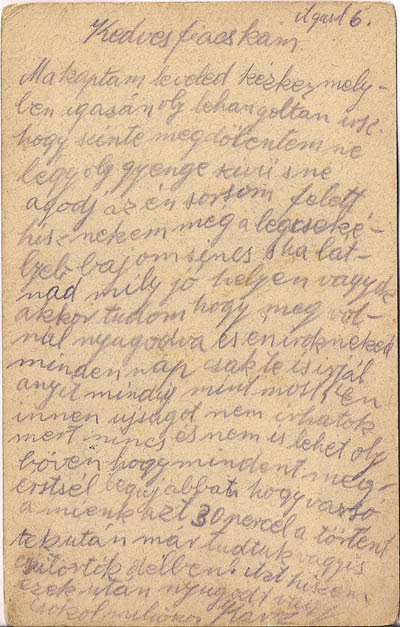 April 6.
Kedves fiacskam.
Makaptam leveled kézhez mely-
ben igasán oly lehangoltan irsz.
hogy szinte megdöbentem ne
légy oly gyenge szivü s ne
agodj az én sorsom felett
hisz nekem meg a legcseké-
lyebb bajom sincs s ha lát-
nád mily jó helyen vagyok
akkor tudom hogy meg vol-
nál nyugodva és én irok neked
minden nap csak te is irjál
anyit mindig mint most. En
innen ujságot nem irhatok
mert nincs és nem is lehet oly
bőven hogy mindent meg-
értsél legujabbat hogy
a mienk hzt 30 percel a történt
tek után mar tudtuk vagyis
csütörtök délben. itt hiszem
ezek után nyugodt vagy
csokol milioszor